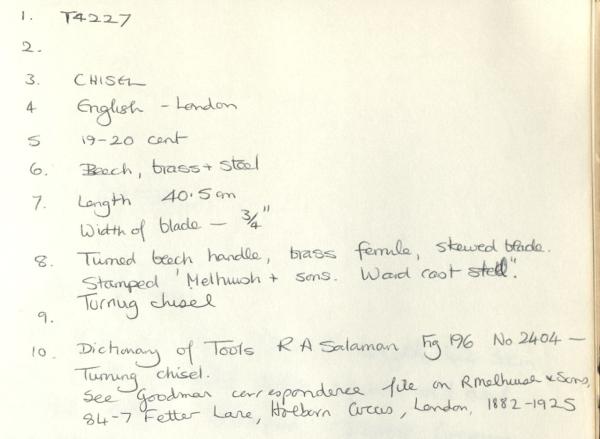 1. T4227
2.
3. CHISEL
4 English - London
5 19-20 cent
6. Beech, brass + steel
7. Length 40.5cm
Width of blade - 3/4"
8. Turned beech handle, brass ferrule, skewed blade.
Stamped 'Melhuish + sons. Ward cast steel".
Turnug chisel
9.
10. Dictionary of Tools R A Salaman Fig 196 No 2404 -
Turning chisel.
See Goodman correspondence file on R Melhuish & Sons,
84-7 Fetter Lane, Holborn Circus, London, 1882-1925